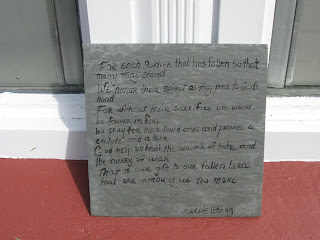 For each soldier that has fallen so that
many may stand
We honor their spirit as they pass to God's
hand
For without their sacrifice we would
be forever in fear
We pray for their loved ones and provide a
salute and a tear
God help us heal the wounds of hate and
the misery of war
That is our gift to our fallen
that